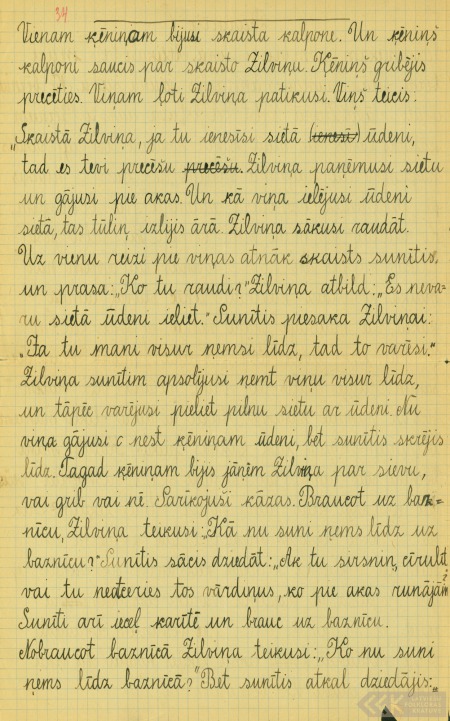 34
Vienam ķēniņam bijusi skaista kalpone. Un ķēniņš
kalponi saucis par skaisto Zilviņu. Ķēniņš gribējis
precēties. Viņam ļoti Zilviņa patikusi. Viņš teicis:
„Skaistā Zilviņa, ja tu ienesīsi sietā (ienesī) ūdeni,
tad es tevi precēšu precēšu. Zilviņa paņēmusi sietu
un gājusi pie akas. Un kā viņa ielējusi ūdeni
sietā, tas tūliņ izlijis ārā. Zilviņa sākusi raudāt.
Uz vienu reizi pie viņas atnāk skaists sunītis,
un prasa: „Ko tu raudi?" Zilviņa atbild: „Es neva-
ru sietā ūdeni ieliet." Sunītis piesaka Zilviņai:
„Ja tu mani visur ņemsi līdz, tad to varīsi."
Zilviņa sunītim apsolījusi ņemt viņu visur līdz,
un tāpēc varējusi pieliet pilnu sietu ar ūdeni. Nu
viņa gājusi nest ķēniņam ūdeni, bet sunītis skrējis
līdz. Tagad ķēniņam bijis jāņem Zilviņa par sievu,
vai grib vai nē. Sarīkojuši kāzas. Braucot uz baz=
nīcu, Zilviņa teikusi: „Kā nu suni ņems līdz uz
baznīcu?" Sunītis sācis dziedāt: „Ak tu sirsniņ, cīrulīt,
vai tu neatceries tos vārdiņus, ko pie akas runājām?
Sunīti arī ieceļ karītē un brauc uz baznīcu.
Nobraucot baznīcā Zilviņa teikusi: „Ko nu suni
ņems līdz baznīcā?" Bet sunītis atkal dziedājis: „